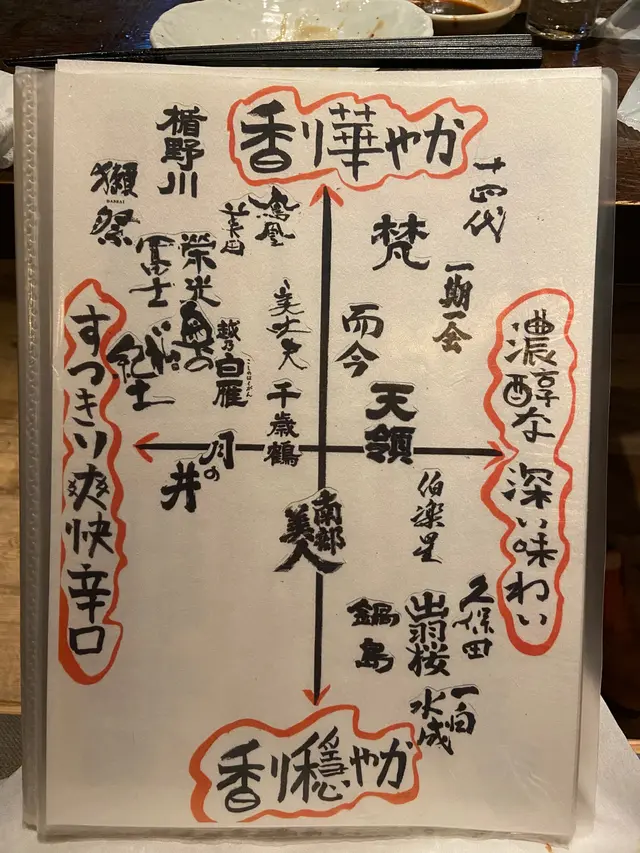 香り華やか
楯野川
十四代
獺祭
DASSAI
鳳凰
美田
梵
栄光
冨士
一期一会
美丈夫
而今
すっきり爽快辛口
濃醇な深い味わい
紀土
越乃
白雁
こしのはくがん
千歳鶴
天領
月の
井
伯楽星
南部
美人
鍋島
出羽桜
久保田
一白
水成
香り穏やか